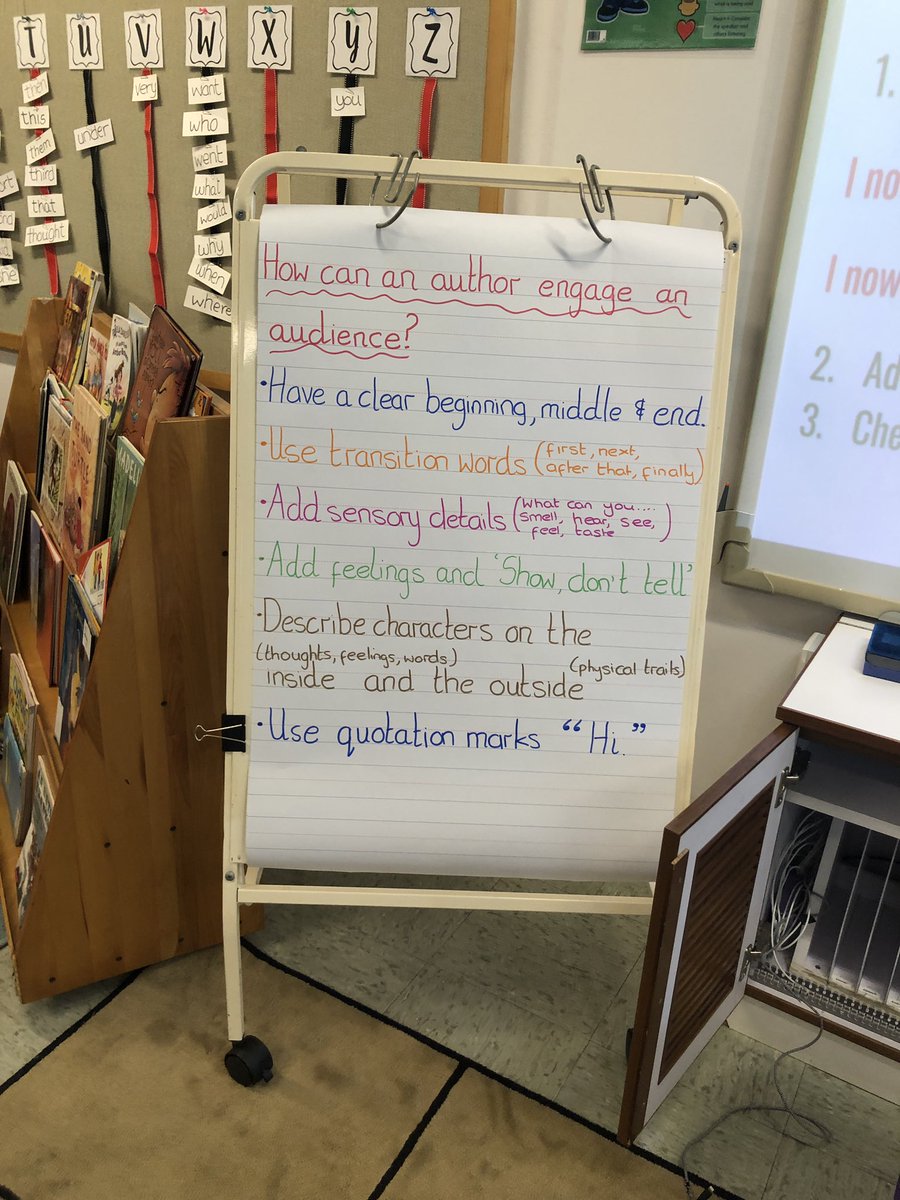 T U V W X Y Z
then
this
them
third
that
thought
under
very
want
who
went
what
would
why
when
where
you
How can an author engage an
audience?
·Have a clear beginning, middle & end.
·Use transition words (first, next,
after that, finally)
·Add sensory details (What can you....
smell, hear, see,
feel, taste)
·Add feelings and 'Show, don't tell'
·Describe characters on the
(thoughts, feelings, words) (physical traits)
inside and the outside
·Use quotation marks "Hi."
what is being said
others listening
1.
I no
I now
2. Ad
3. Che